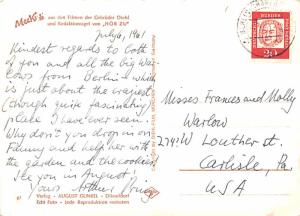 Mecki's aus den Filmen der Gebrüder Diehl
und Redaktionsigel von „HÖR ZU"
July 6, 1961
Kindest regards to both
of you and all the big War-
lows from Berlin - which
is just about the craziest
(though quite fascinating)
place I have ever seen.
Why don't you drop in on
Fanny and help her with
the garden and the cookies!
See you in August!
Yours Arthur
Verlag - AUGUST GUNKEL - Düsseldorf
Echt Foto - Jede Reproduktion verboten
DEUTSCHE
20
Misses Frances and Molly
Warlow
274 W Louther St.
Carlisle, Pa.
USA